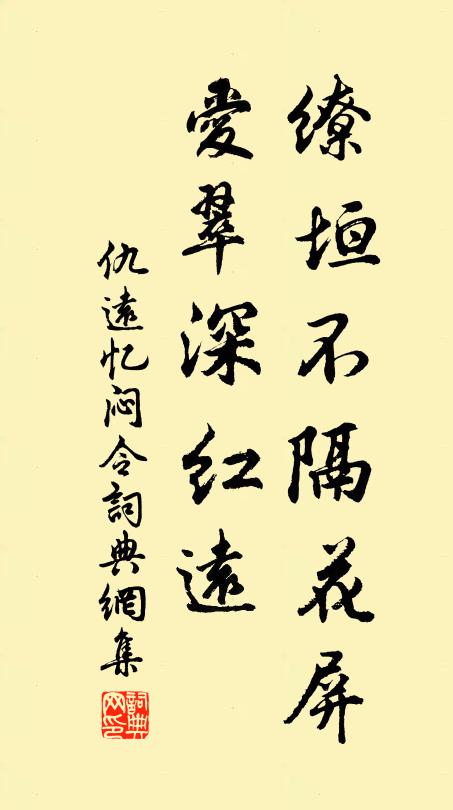 繚垣不隔花屏
愛翠深紅遠
仇遠忆闷令詞典網集
詞典网印